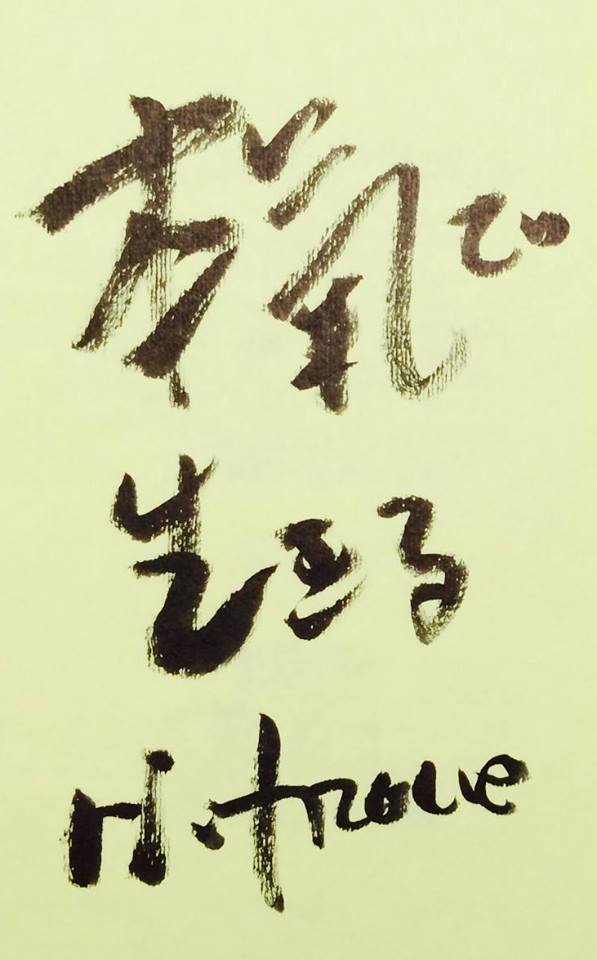 本氣で
生きる
H. Inoue